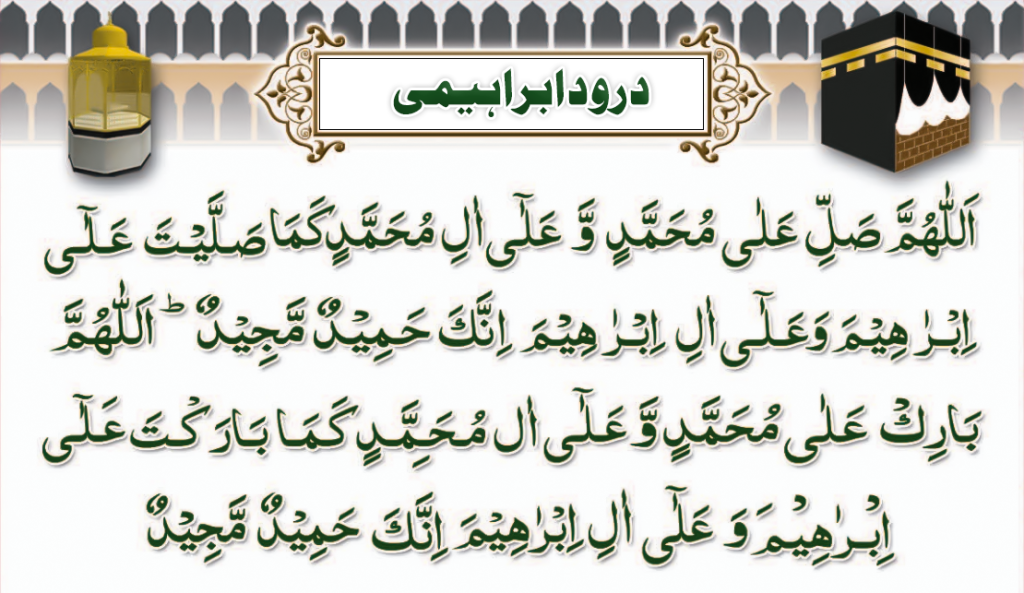 درود ابراہیمی
اَللّٰهُمَّ صَلِّ عَلٰی مُحَمَّدٍ وَّ عَلٰٓی اٰلِ مُحَمَّدٍ كَمَا صَلَّیْتَ عَلٰٓی
اِبْرٰهِیْمَ وَعَلٰٓی اٰلِ اِبْرٰهِیْمَ اِنَّكَ حَمِیْدٌ مَّجِیْدٌ ؕ اَللّٰهُمَّ
بَارِكْ عَلٰی مُحَمَّدٍ وَّ عَلٰٓی اٰل مُحَمِّدٍ كَمَا بَارَكْتَ عَلٰٓی
اِبْرٰهِیْمَ وَ عَلٰٓی اٰلِ اِبْرٰهِیْمَ اِنَّكَ حَمِیْدٌ مَّجِیْدٌ